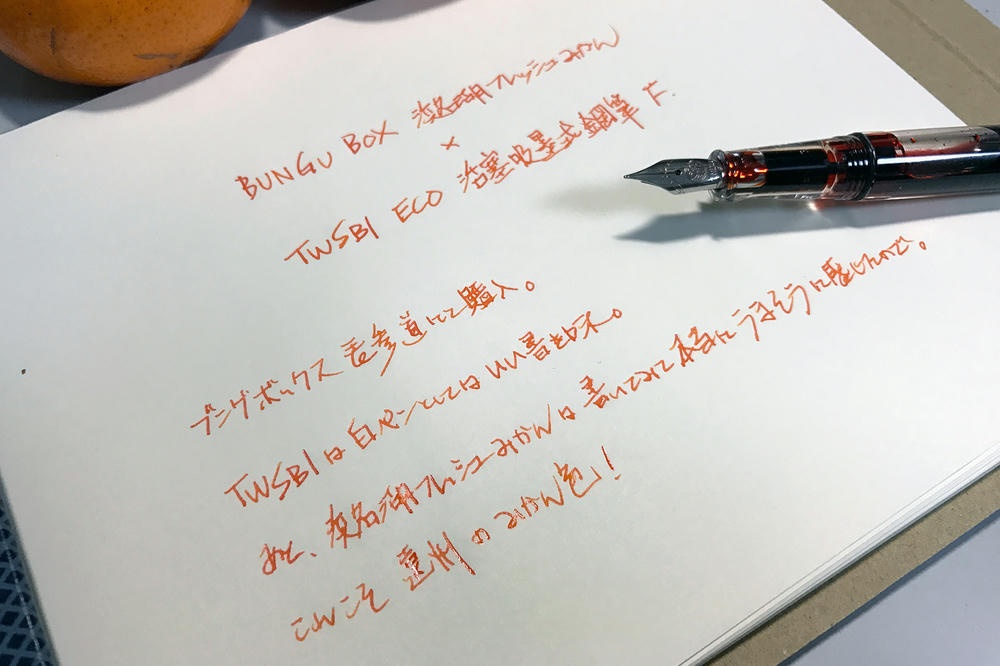 BUNGU BOX 浜名湖フレッシュみかん
×
TWSBI ECO 活塞吸墨式鋼筆 F.
ブングボックス表参道にて購入。
TWSBIは白ペンとしてはいい書き味。
あと、浜名湖フレッシュみかんは書いてみて本当に
これこそ遠州のみかん色!